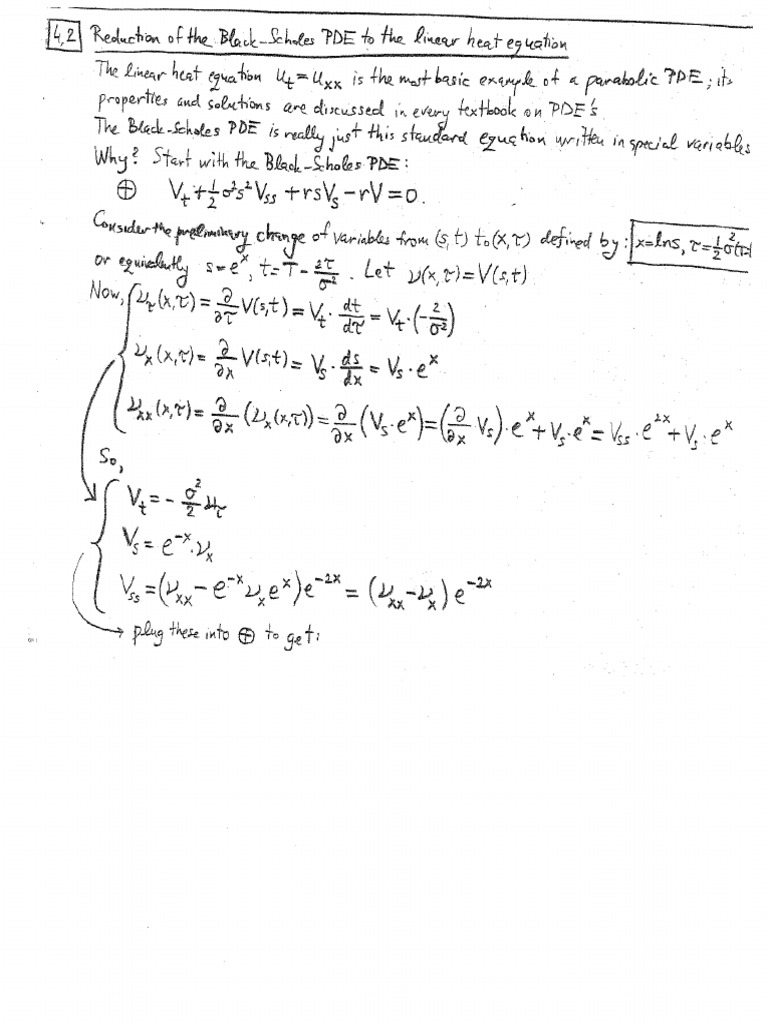 4,2 Reduction of the Black-Scholes PDE to the linear heat equation
The linear heat equation u_t = u_xx is the most basic example of a parabolic PDE; its
properties and solutions are discussed in every textbook on PDE's
The Black-Scholes PDE is really just this standard equation written in special variables
Why? Start with the Black-Scholes PDE:
⊕ V_t + 1/2 σ²s² V_ss + rsV_s - rV = 0.
Consider the preliminary change of variables from (s,t) to (x,τ) defined by: x=lns, τ=1/2 σ²(T-t
or equivalently s=e^x, t=T- 2τ/σ². Let ν(x,τ)=V(s,t)
Now, ν_τ(x,τ) = ∂/∂τ V(s,t) = V_t · dt/dτ = V_t·(-2/σ²)
ν_x(x,τ) = ∂/∂x V(s,t) = V_s · ds/dx = V_s·e^x
ν_xx(x,τ) = ∂/∂x (ν_x(x,τ)) = ∂/∂x (V_s·e^x) = (∂/∂x V_s)·e^x + V_s·e^x = V_ss·e^2x + V_s·e^x
So,
V_t = - σ²/2 ν_τ
V_s = e^-x·ν_x
V_ss = (ν_xx - e^-x ν_x e^x) e^-2x = (ν_xx - ν_x) e^-2x
plug these into ⊕ to get: